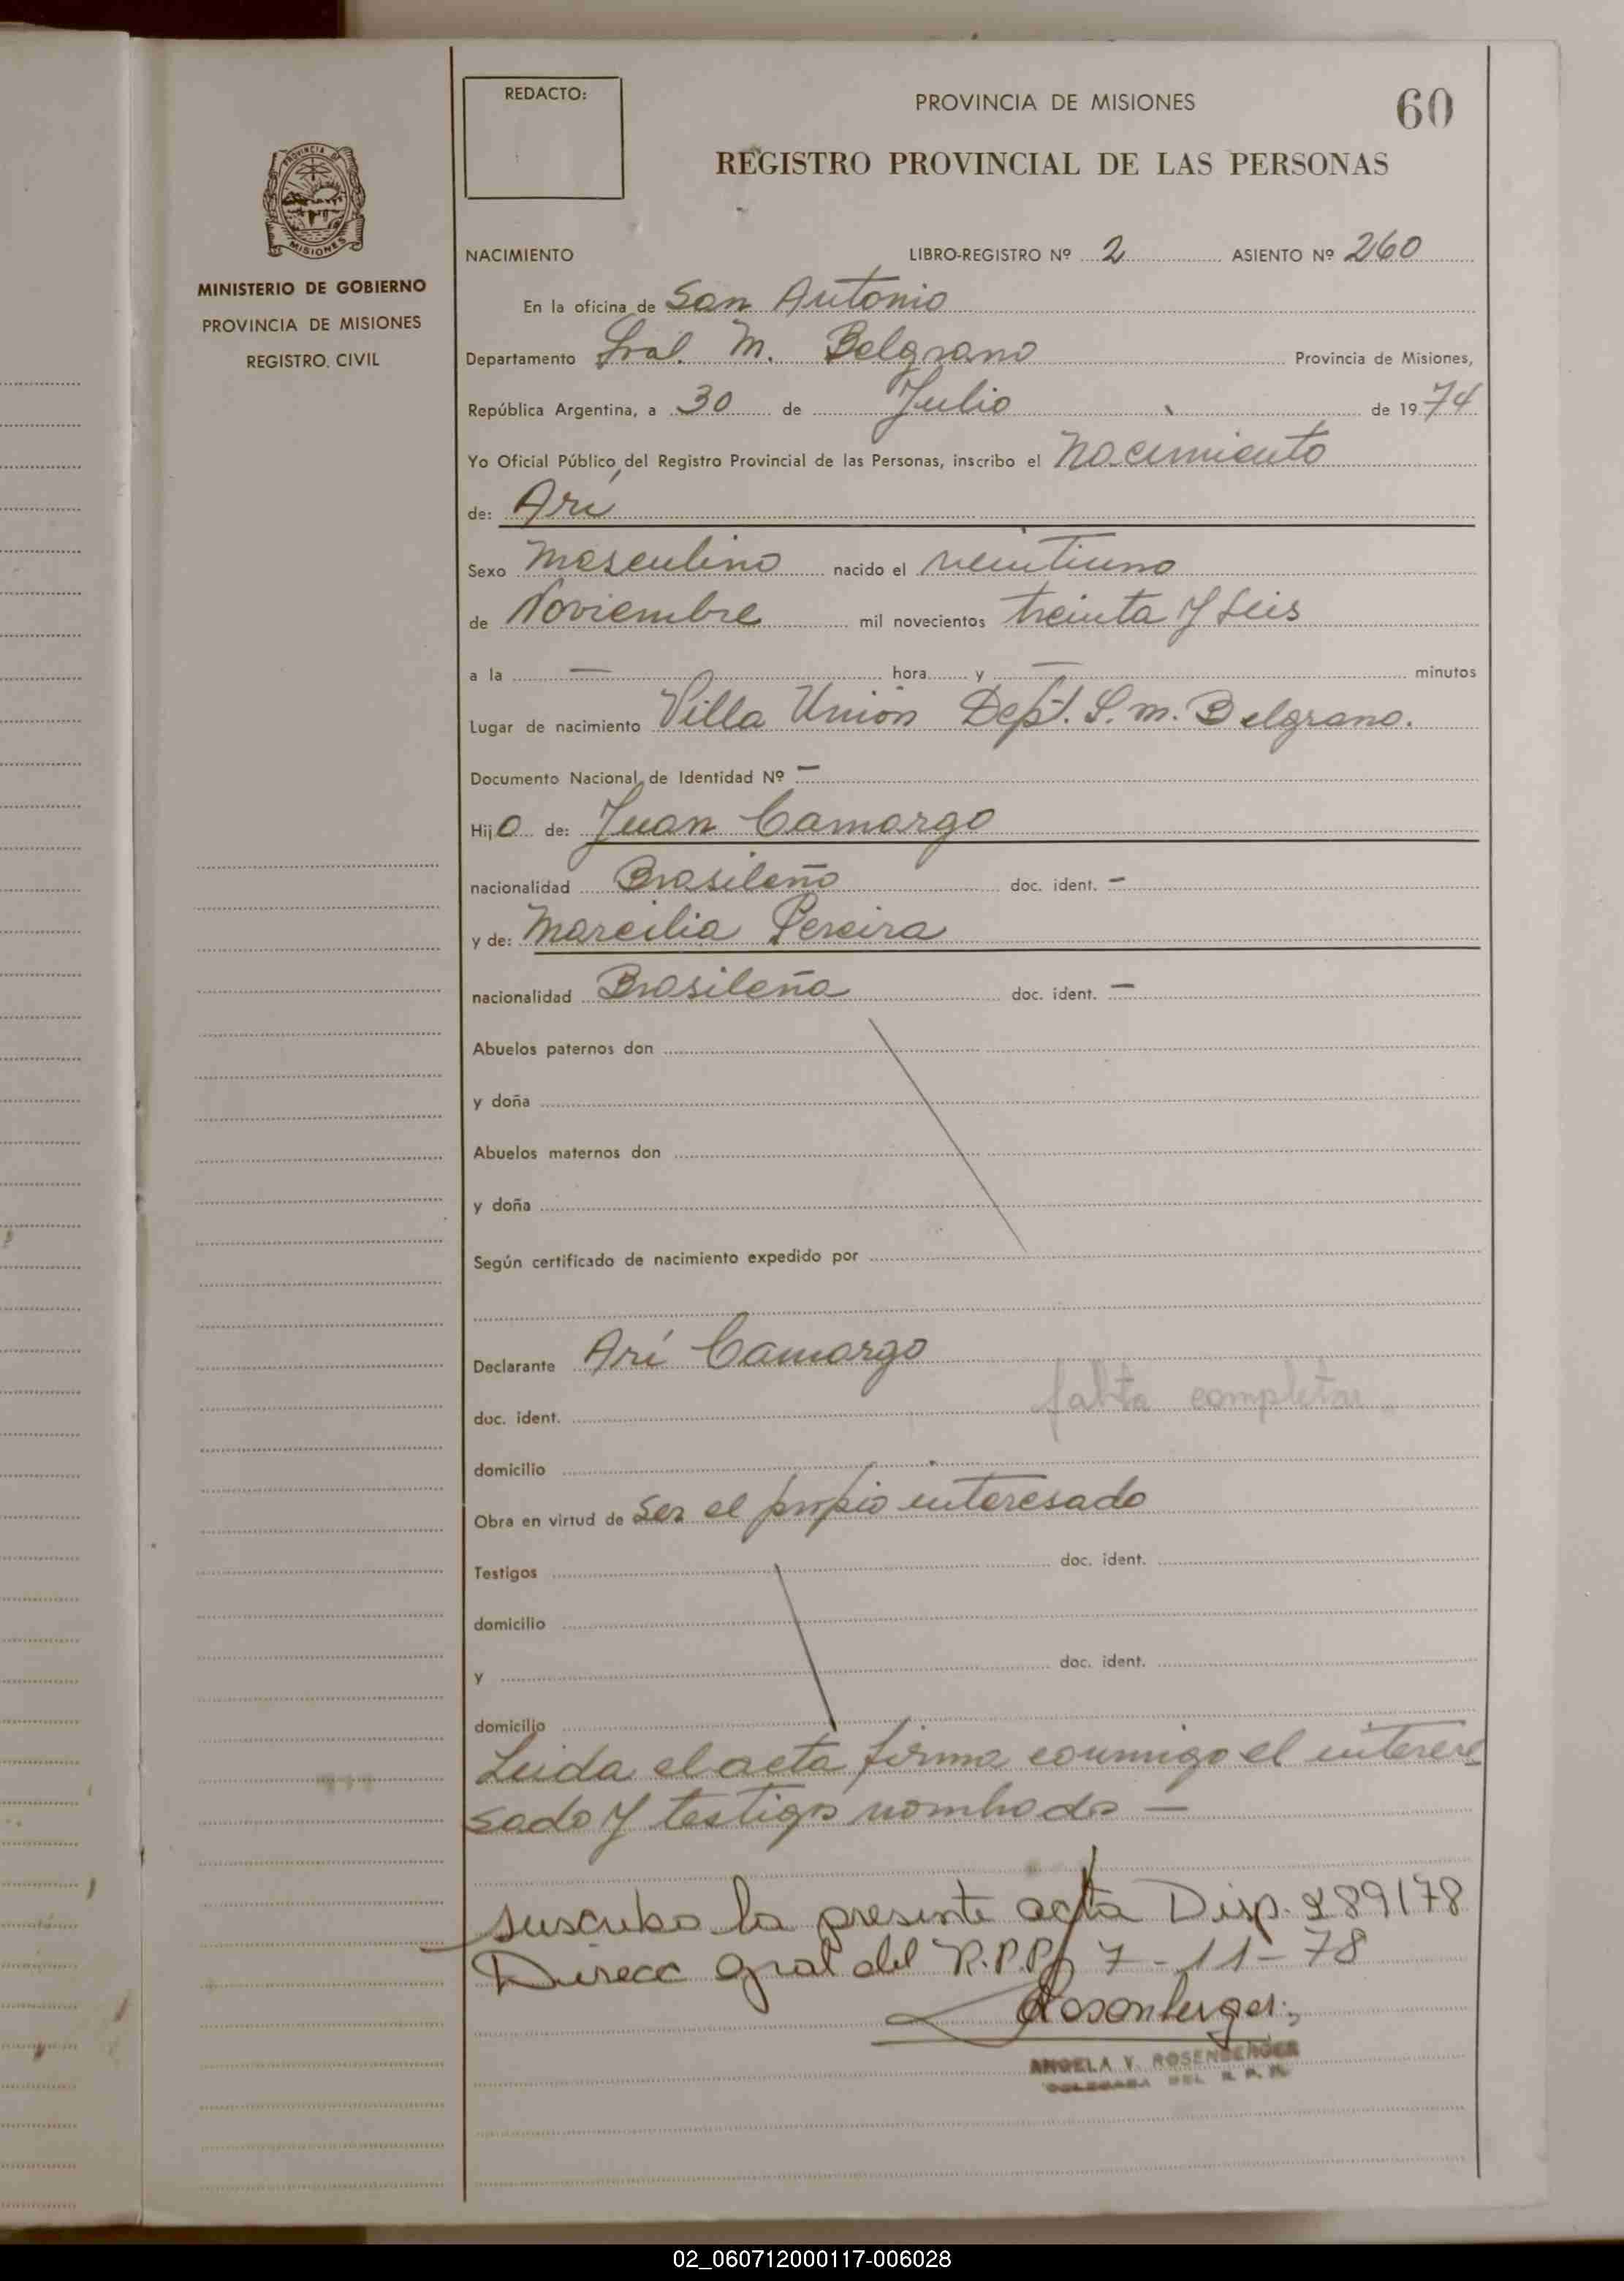 REDACTO:
PROVINCIA DE MISIONES
60
REGISTRO PROVINCIAL DE LAS PERSONAS
PROVINCIA DE
MISIONES
MINISTERIO DE GOBIERNO
PROVINCIA DE MISIONES
REGISTRO. CIVIL
NACIMIENTO LIBRO-REGISTRO Nº 2 ASIENTO Nº 260
En la oficina de San Antonio
Departamento Gral. M. Belgrano Provincia de Misiones,
República Argentina, a 30 de Julio de 1974
Yo Oficial Público, del Registro Provincial de las Personas, inscribo el Nacimiento
de: Arí
Sexo Masculino nacido el veintiuno
de Noviembre mil novecientos treinta y seis
a la — hora y — minutos
Lugar de nacimiento Villa Unión Dept. G. M. Belgrano.
Documento Nacional de Identidad Nº —
Hijo de: Juan Camargo
nacionalidad Brasileño doc. ident. —
y de: Marcilia Pereira
nacionalidad Brasileña doc. ident. —
Abuelos paternos don
y doña
Abuelos maternos don
y doña
Según certificado de nacimiento expedido por
Declarante Arí Camargo
falta completar
doc. ident.
domicilio
Obra en virtud de ser el propio interesado
Testigos doc. ident.
domicilio
y doc. ident.
domicilio
Leida el acta firma conmigo el intere
sado y testigos nombrados —
suscribo la presente acta Disp. 289/78
Direcc Gral del R.P.P. 7-11-78
Rosenberger
ANGELA V. ROSENBERGER
DELEGADA DEL R. P. P.
02_060712000117-006028